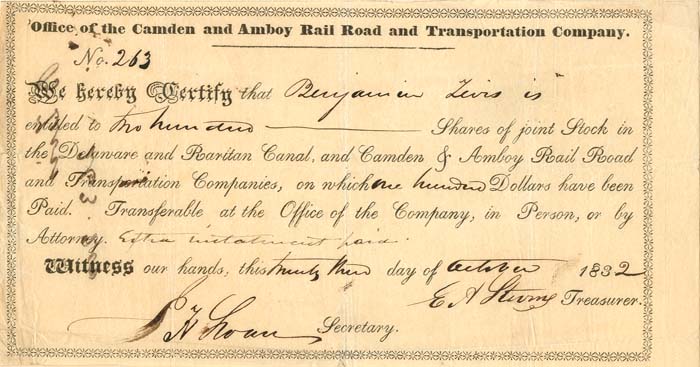 Office of the Camden and Amboy Rail Road and Transportation Company.
No. 263
We hereby Certify that Benjamin Levis is
entitled to two hundred Shares of joint Stock in
the Delaware and Raritan Canal, and Camden & Amboy Rail Road
and Transportation Companies, on which one hundred Dollars have been
Paid. Transferable at the Office of the Company, in Person, or by
Attorney. Extra instalment paid.
Witness our hands, this twenty third day of October 1832
E A Stevens Treasurer.
Secretary.